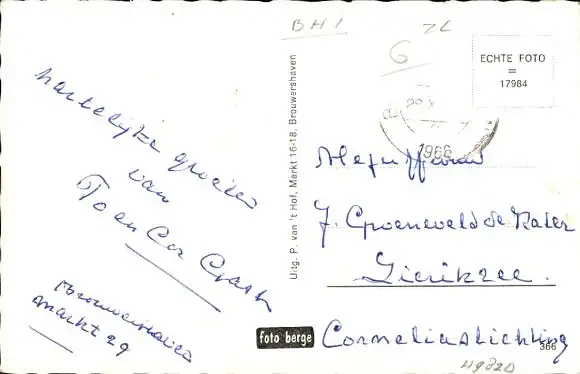 BH1
ZL
G
ECHTE FOTO
=
17984
1966
Uitg. P. van 't Hof, Markt 16-18, Brouwershaven
hartelijke groeten
van
To en Cor
Brouwershaven
Markt 29
Mejuffrouw
J. Groeneveld de Kater
Zierikzee.
Corneliastichting
foto berge
366